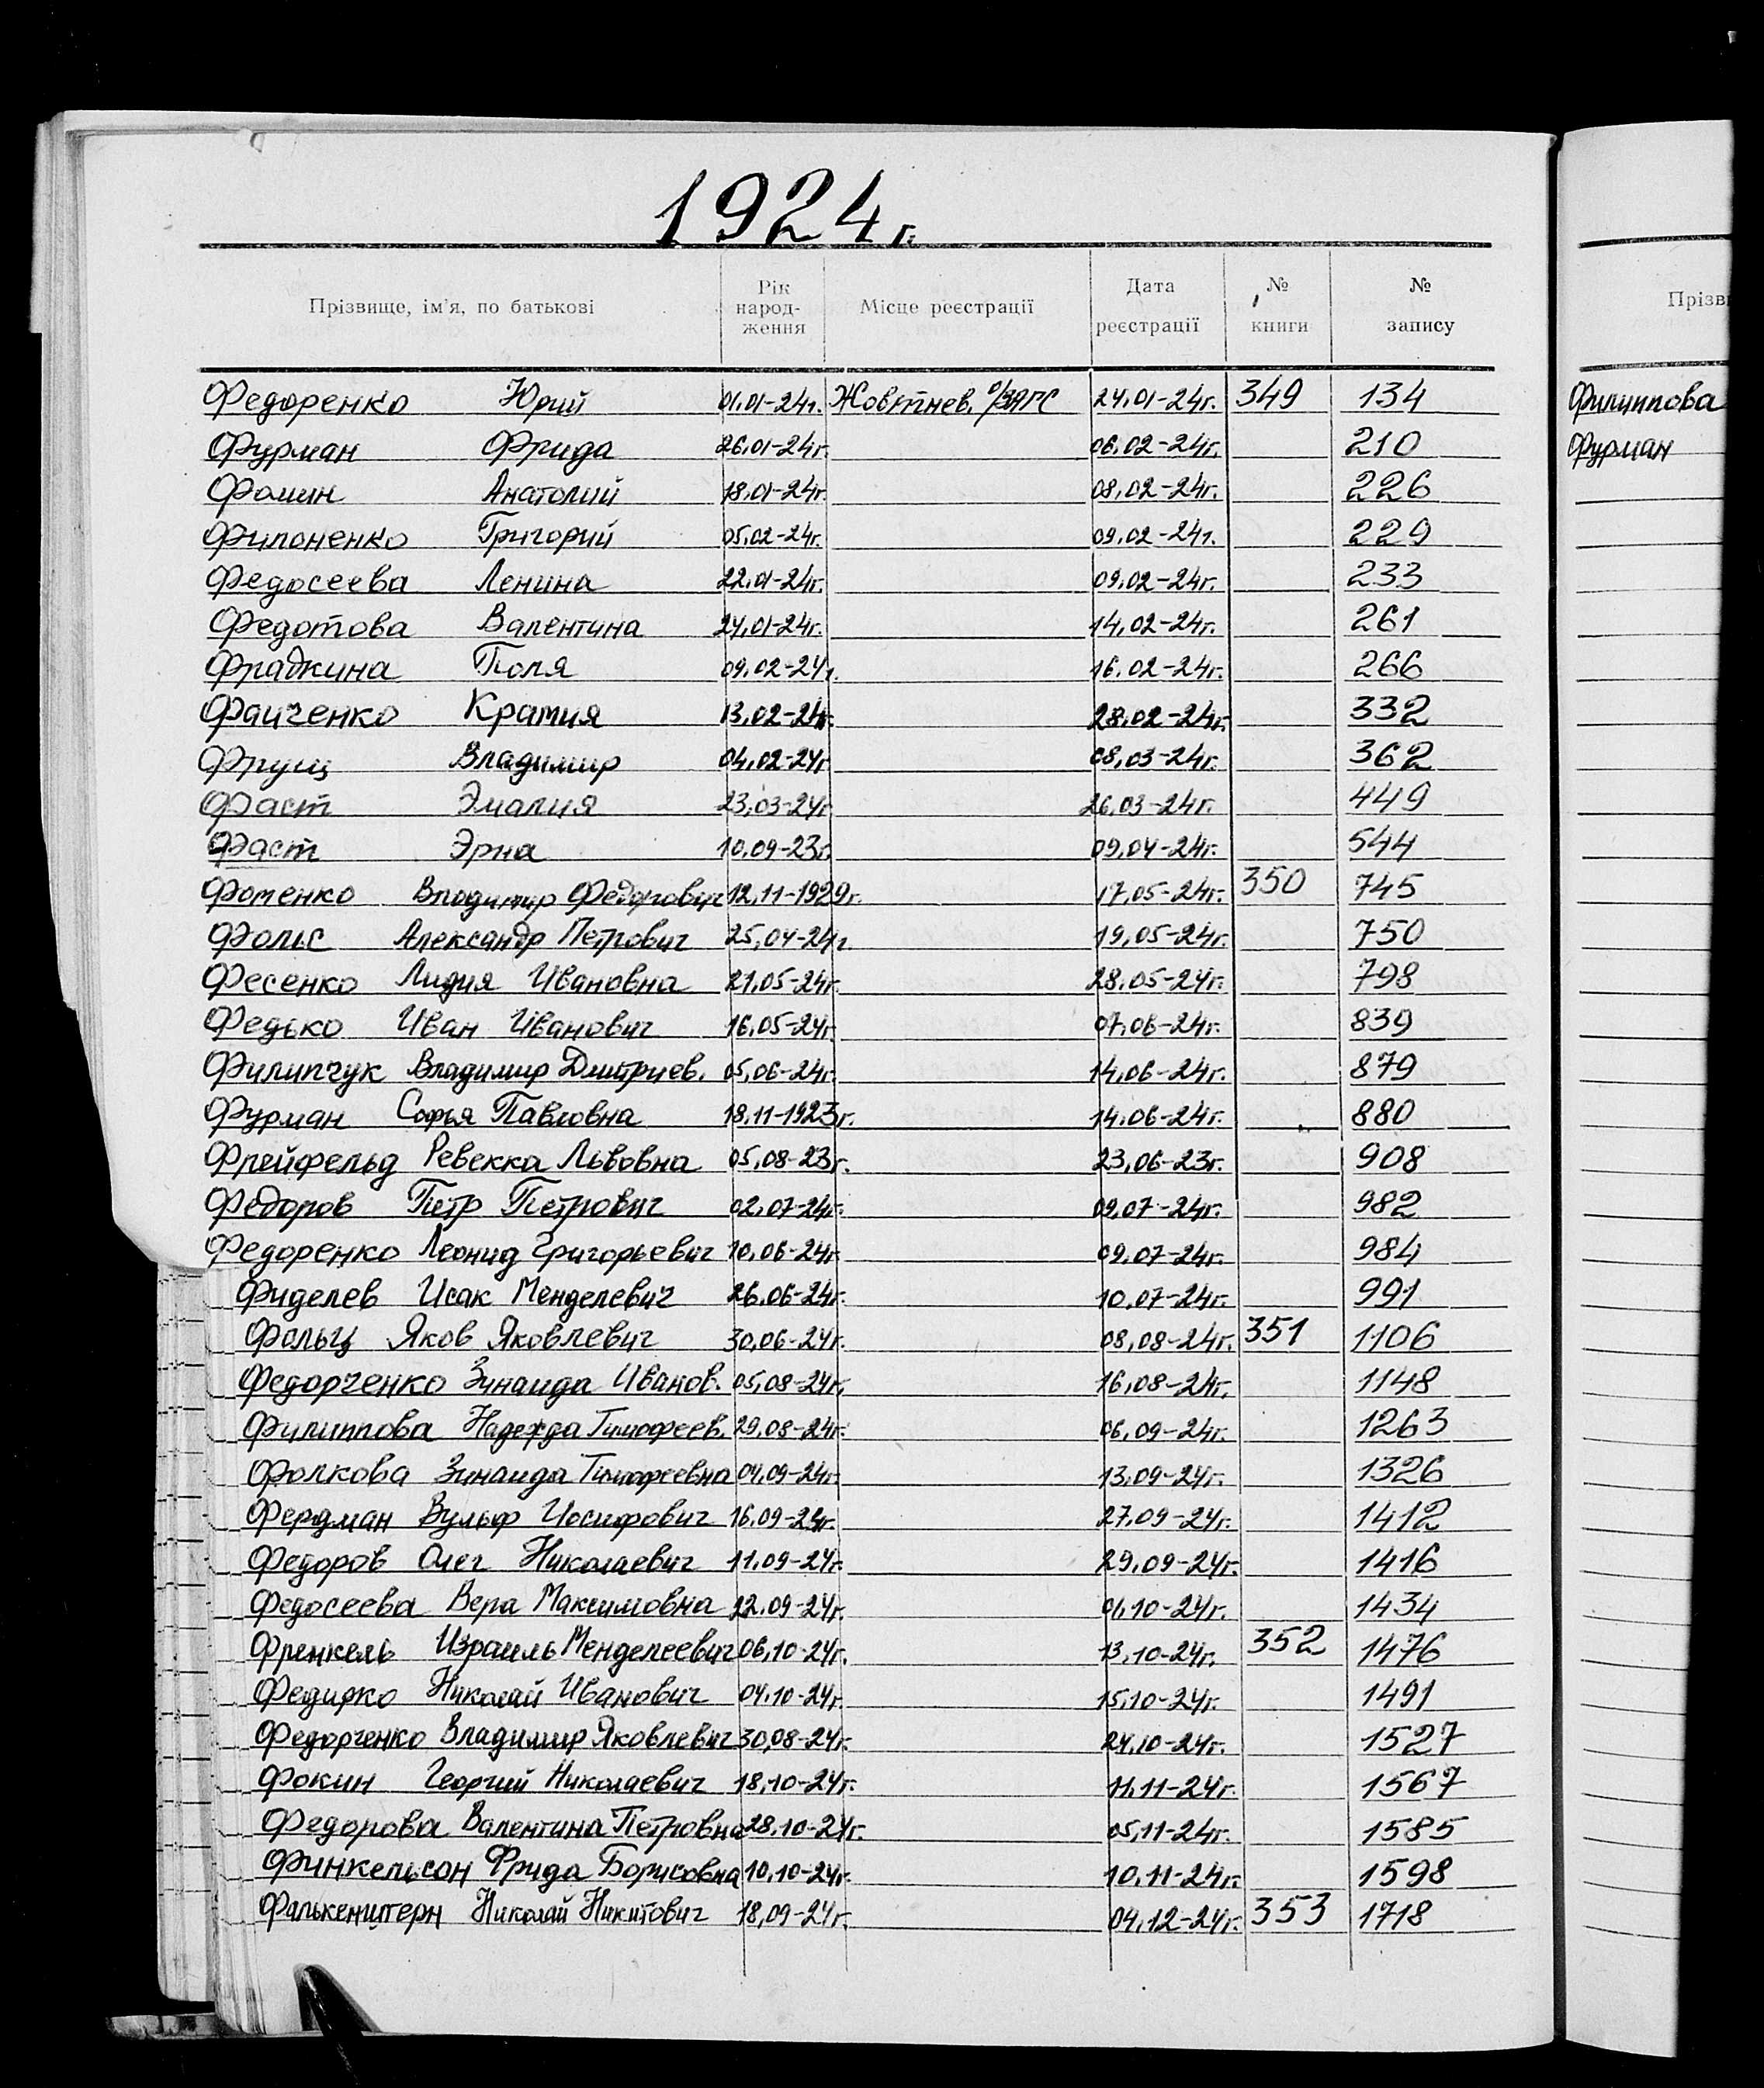 1924г.
Прізвище, ім'я, по батькові Рік народ-ження Місце реєстрації Дата реєстрації № книги № запису
Федоренко Юрий 01.01-24г. Жовтнев. о/ЗАГС 24.01-24г. 349 134
Фурман Фрида 26.01-24г. 06.02-24г. 210
Фомин Анатолий 18.01-24г. 08.02-24г. 226
Филоненко Григорий 05.02-24г. 09.02-24г. 229
Федосеева Ленина 22.01-24г. 09.02-24г. 233
Федотова Валентина 24.01-24г. 14.02-24г. 261
Фрадкина Поля 09.02-24г. 16.02-24г. 266
Фаиченко Крамия 13.02-24г. 28.02-24г. 332
Фрущ Владимир 04.02-24г 08.03-24г. 362
Фаст Эмалия 23.03-24г. 26.03-24г. 449
Фаст Эрна 10.09-23г. 09.04-24г. 544
Фоменко Владимир Федорович 12.11-1929г. 17.05-24г. 350 745
Фольс Александр Петрович 25.04-24г 19.05-24г. 750
Фесенко Лидия Ивановна 21.05-24г. 28.05-24г. 798
Федько Иван Иванович 16.05-24г. 07.06-24г. 839
Филипчук Владимир Дмитриев. 05.06-24г. 14.06-24г. 879
Фурман Софья Павловна 18.11-1923г. 14.06-24г. 880
Фрейфельд Ревекка Львовна 05.08-23г. 23.06-23г. 908
Федоров Петр Петрович 02.07-24г. 09.07-24г. 982
Федоренко Леонид Григорьевич 10.06-24г. 09.07-24г. 984
Фиделев Исак Менделевич 26.06-24г. 10.07-24г. 991
Фольц Яков Яковлевич 30.06-24г. 08.08-24г. 351 1106
Федорченко Зинаида Иванов. 05.08-24г. 16.08-24г. 1148
Филиппова Надежда Тимофеев. 29.08-24г. 06.09-24г. 1263
Фолкова Зинаида Тимофеевна 04.09-24г. 13.09-24г. 1326
Фердман Вульф Иосифович 16.09-24г. 27.09-24г. 1412
Федоров Олег Николаевич 11.09-24г. 29.09-24г. 1416
Федосеева Вера Максимовна 22.09-24г. 01.10-24г. 1434
Френкель Израиль Менделеевич 06.10-24г. 13.10-24г. 352 1476
Федирко Николай Иванович 04.10-24г. 15.10-24г. 1491
Федорченко Владимир Яковлевич 30.08-24г. 24.10-24г. 1527
Фокин Георгий Николаевич 18.10-24г. 11.11-24г. 1567
Федорова Валентина Петровна 28.10-24г. 05.11-24г. 1585
Финкельсон Фрида Борисовна 10.10-24г. 10.11-24г. 1598
Фалькенштерн Николай Никитович 18.09-24г. 04.12-24г. 353 1718
Прізв
Филиппова
Фурман